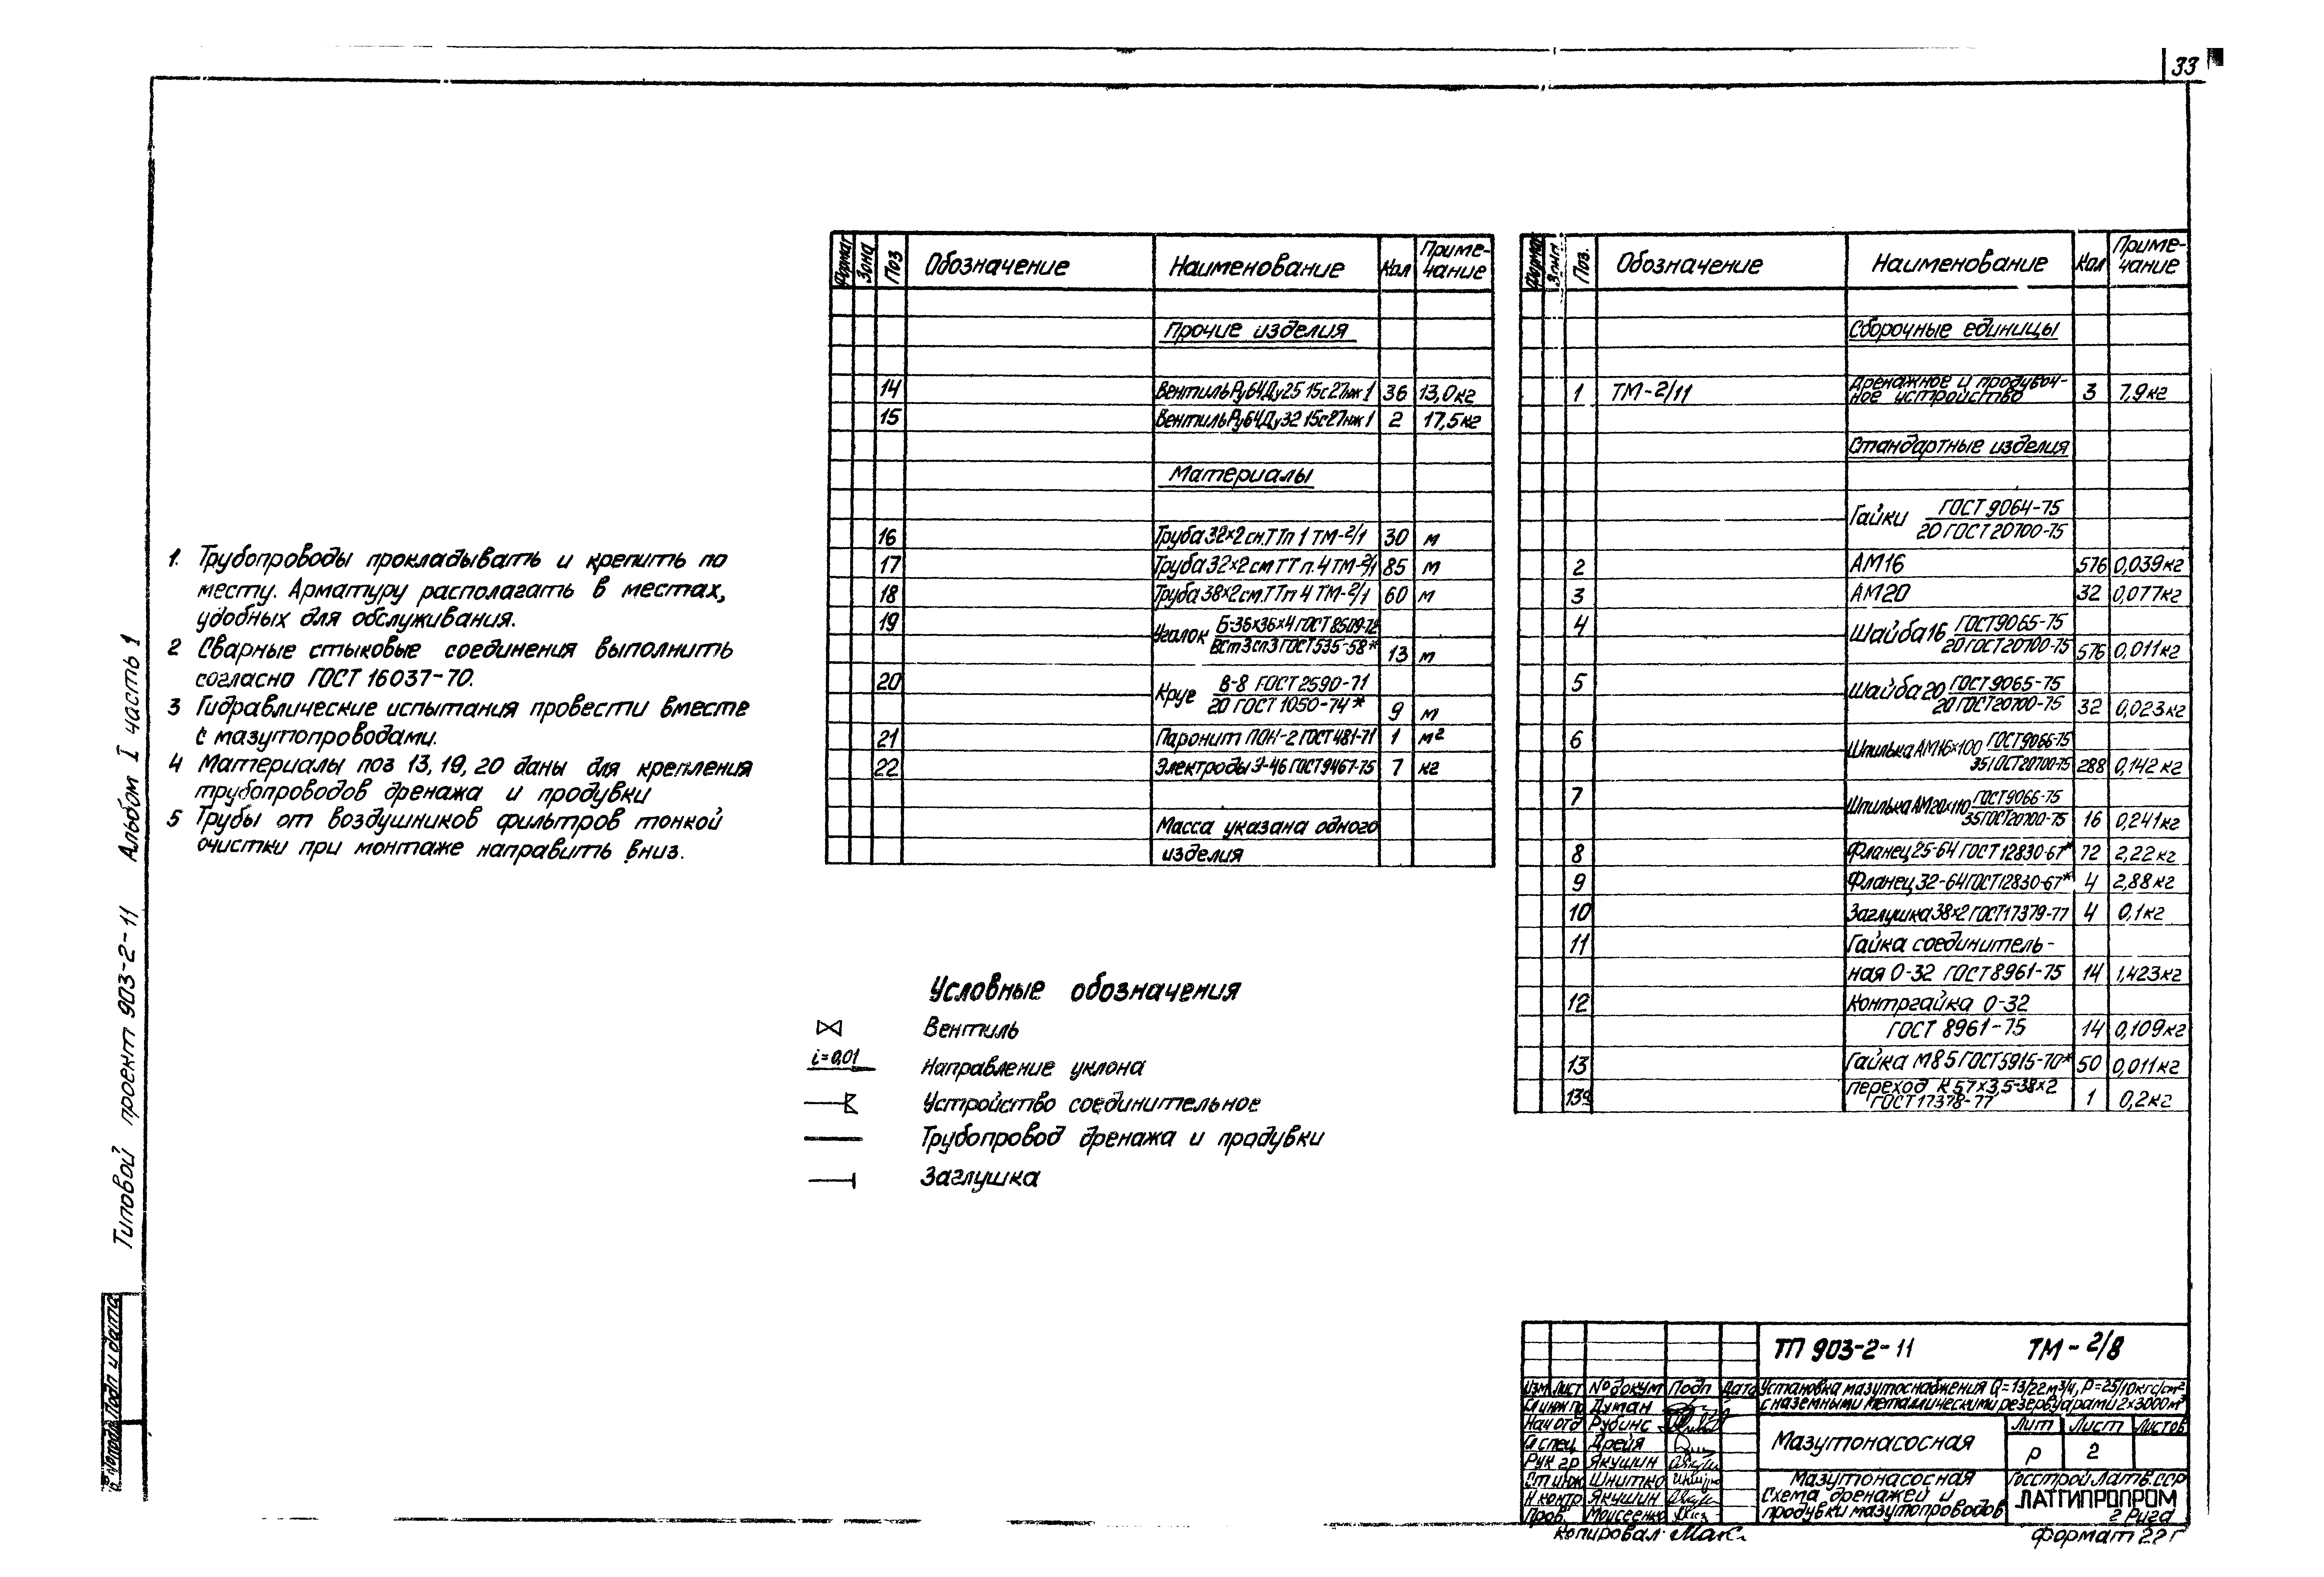 33
Типовой проект 903-2-11 Альбом I часть 1
1. Трубопроводы прокладывать и крепить по
месту. Арматуру располагать в местах,
удобных для обслуживания.
2 Сварные стыковые соединения выполнить
согласно ГОСТ 16037-70.
3 Гидравлические испытания провести вместе
с мазутопроводами.
4 Материалы поз 13, 19, 20 даны для крепления
трубопроводов дренажа и продувки
5 Трубы от воздушников фильтров тонкой
очистки при монтаже направить вниз.
Формат Зона Поз Обозначение Наименование Кол Приме-
чание
Прочие изделия
14 Вентиль Ру64 Ду25 15с27нж1 36 13,0кг
15 Вентиль Ру64 Ду32 15с27нж1 2 17,5кг
Материалы
16 Труба 32×2 см.ТТп 1 ТМ-2/1 30 м
17 Труба 32×2 см ТТ п.4 ТМ-2/1 85 м
18 Труба 38×2 см.ТТп 4 ТМ-2/1 60 м
19 Уголок Б-36×36×4 ГОСТ 8509-72
ВСт3сп3 ГОСТ 535-58* 13 м
20 Круг В-8 ГОСТ 2590-71
20 ГОСТ 1050-74* 9 м
21 Паронит ПОН-2 ГОСТ 481-71 1 м²
22 Электроды Э-46 ГОСТ 9467-75 7 кг
Масса указана одного
изделия
Формат Поз. Обозначение Наименование Кол Приме-
чание
Сборочные единицы
1 ТМ-2/11 Дренажное и продувоч-
ное устройство 3 7,9кг
Стандартные изделия
Гайки ГОСТ 9064-75
20 ГОСТ 20700-75
2 АМ16 576 0,039кг
3 АМ20 32 0,077кг
4 Шайба 16 ГОСТ 9065-75
20 ГОСТ 20700-75 576 0,011кг
5 Шайба 20 ГОСТ 9065-75
20 ГОСТ 20700-75 32 0,023кг
6 Шпилька АМ16×100 ГОСТ 9066-75
35 ГОСТ 20700-75 288 0,142 кг
7 Шпилька АМ20×110 ГОСТ 9066-75
35 ГОСТ 20700-75 16 0,241кг
8 Фланец 25-64 ГОСТ 12830-67* 72 2,22кг
9 Фланец 32-64 ГОСТ 12830-67* 4 2,88кг
10 Заглушка 38×2 ГОСТ 17379-77 4 0,1кг
11 Гайка соединитель-
ная О-32 ГОСТ 8961-75 14 1,423кг
12 Контргайка О-32
ГОСТ 8961-75 14 0,109кг
13 Гайка М8 5 ГОСТ 5915-70* 50 0,011кг
13а переход К 57×3,5-38×2
ГОСТ 17378-77 1 0,2кг
Условные обозначения
Вентиль
i=0,01 Направление уклона
Устройство соединительное
Трубопровод дренажа и продувки
Заглушка
Подп и дата
ТП 903-2-11 ТМ-2/8
Изм Лист № докум Подп Дата
Установка мазутоснабжения Q=13/22м³/ч, Р=25/10кгс/см²
с наземными металлическими резервуарами 2×3000м³
Гл инж пр Думан
Нач отд Рубинс
Гл спец Дрейя
Рук гр Якушин
Ст инж Шнитко
Н контр Якушин
Пров. Моисеенко
Мазутонасосная
Лит Лист Листов
Р 2
Мазутонасосная
Схема дренажей и
продувки мазутопроводов
Госстрой Латв.ССР
ЛАТГИПРОПРОМ
г Рига
Копировал: Макс.
Формат 22Г